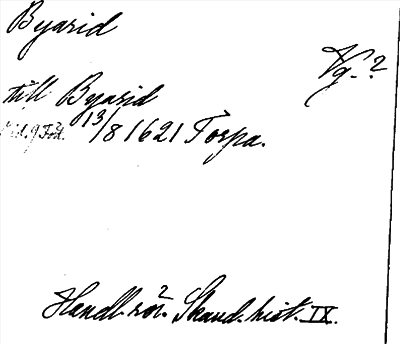 Byarid
Vg.?
till Byarid
13/8 1621 Torpa.
Handl. rör. Skand. hist. IX.